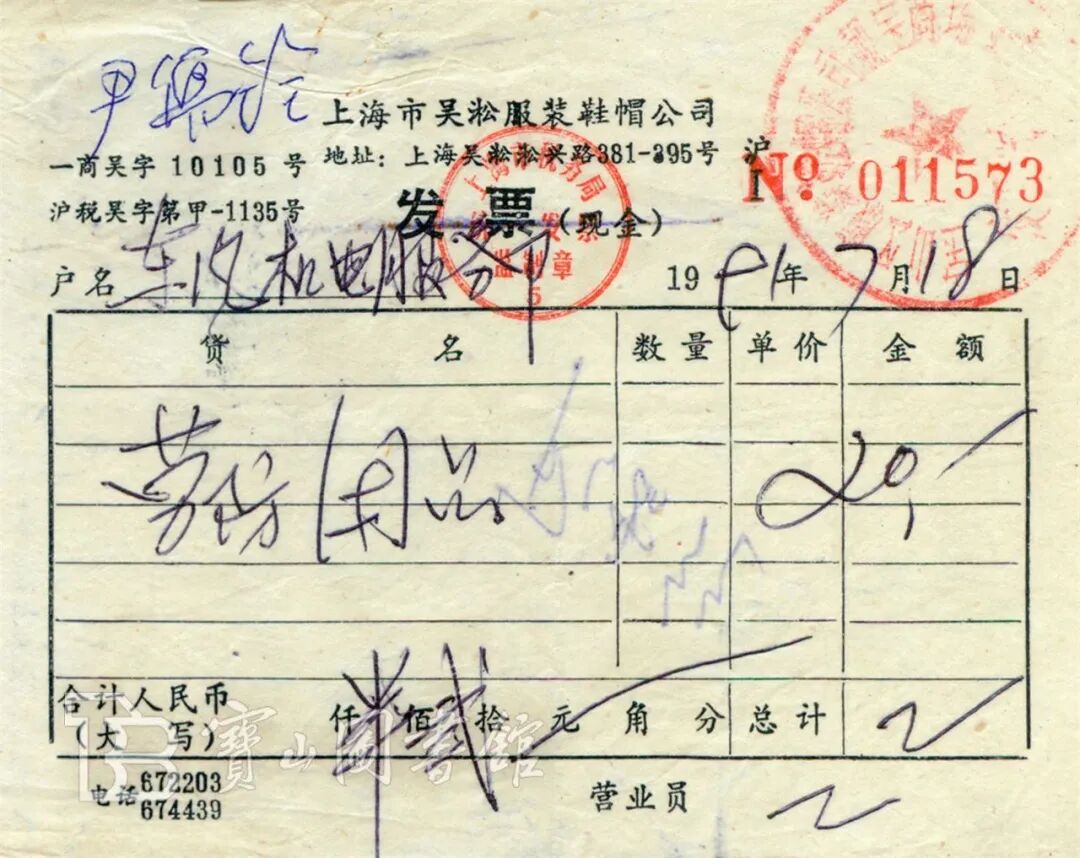 上海市吴淞服装鞋帽公司
一商吴字 10105 号 地址: 上海吴淞淞兴路381-395号
沪税吴字第甲-1135号 发 票(现金) 沪 No. 011573
户名 东风机电服务部 1991年7月18日
货 名 数量 单价 金额
劳防用品 20,-
合计人民币
(大 写) 仟 佰贰拾 元 角 分 总计
电话 672203
674439 营业员
上海市税务局
宝山图书馆